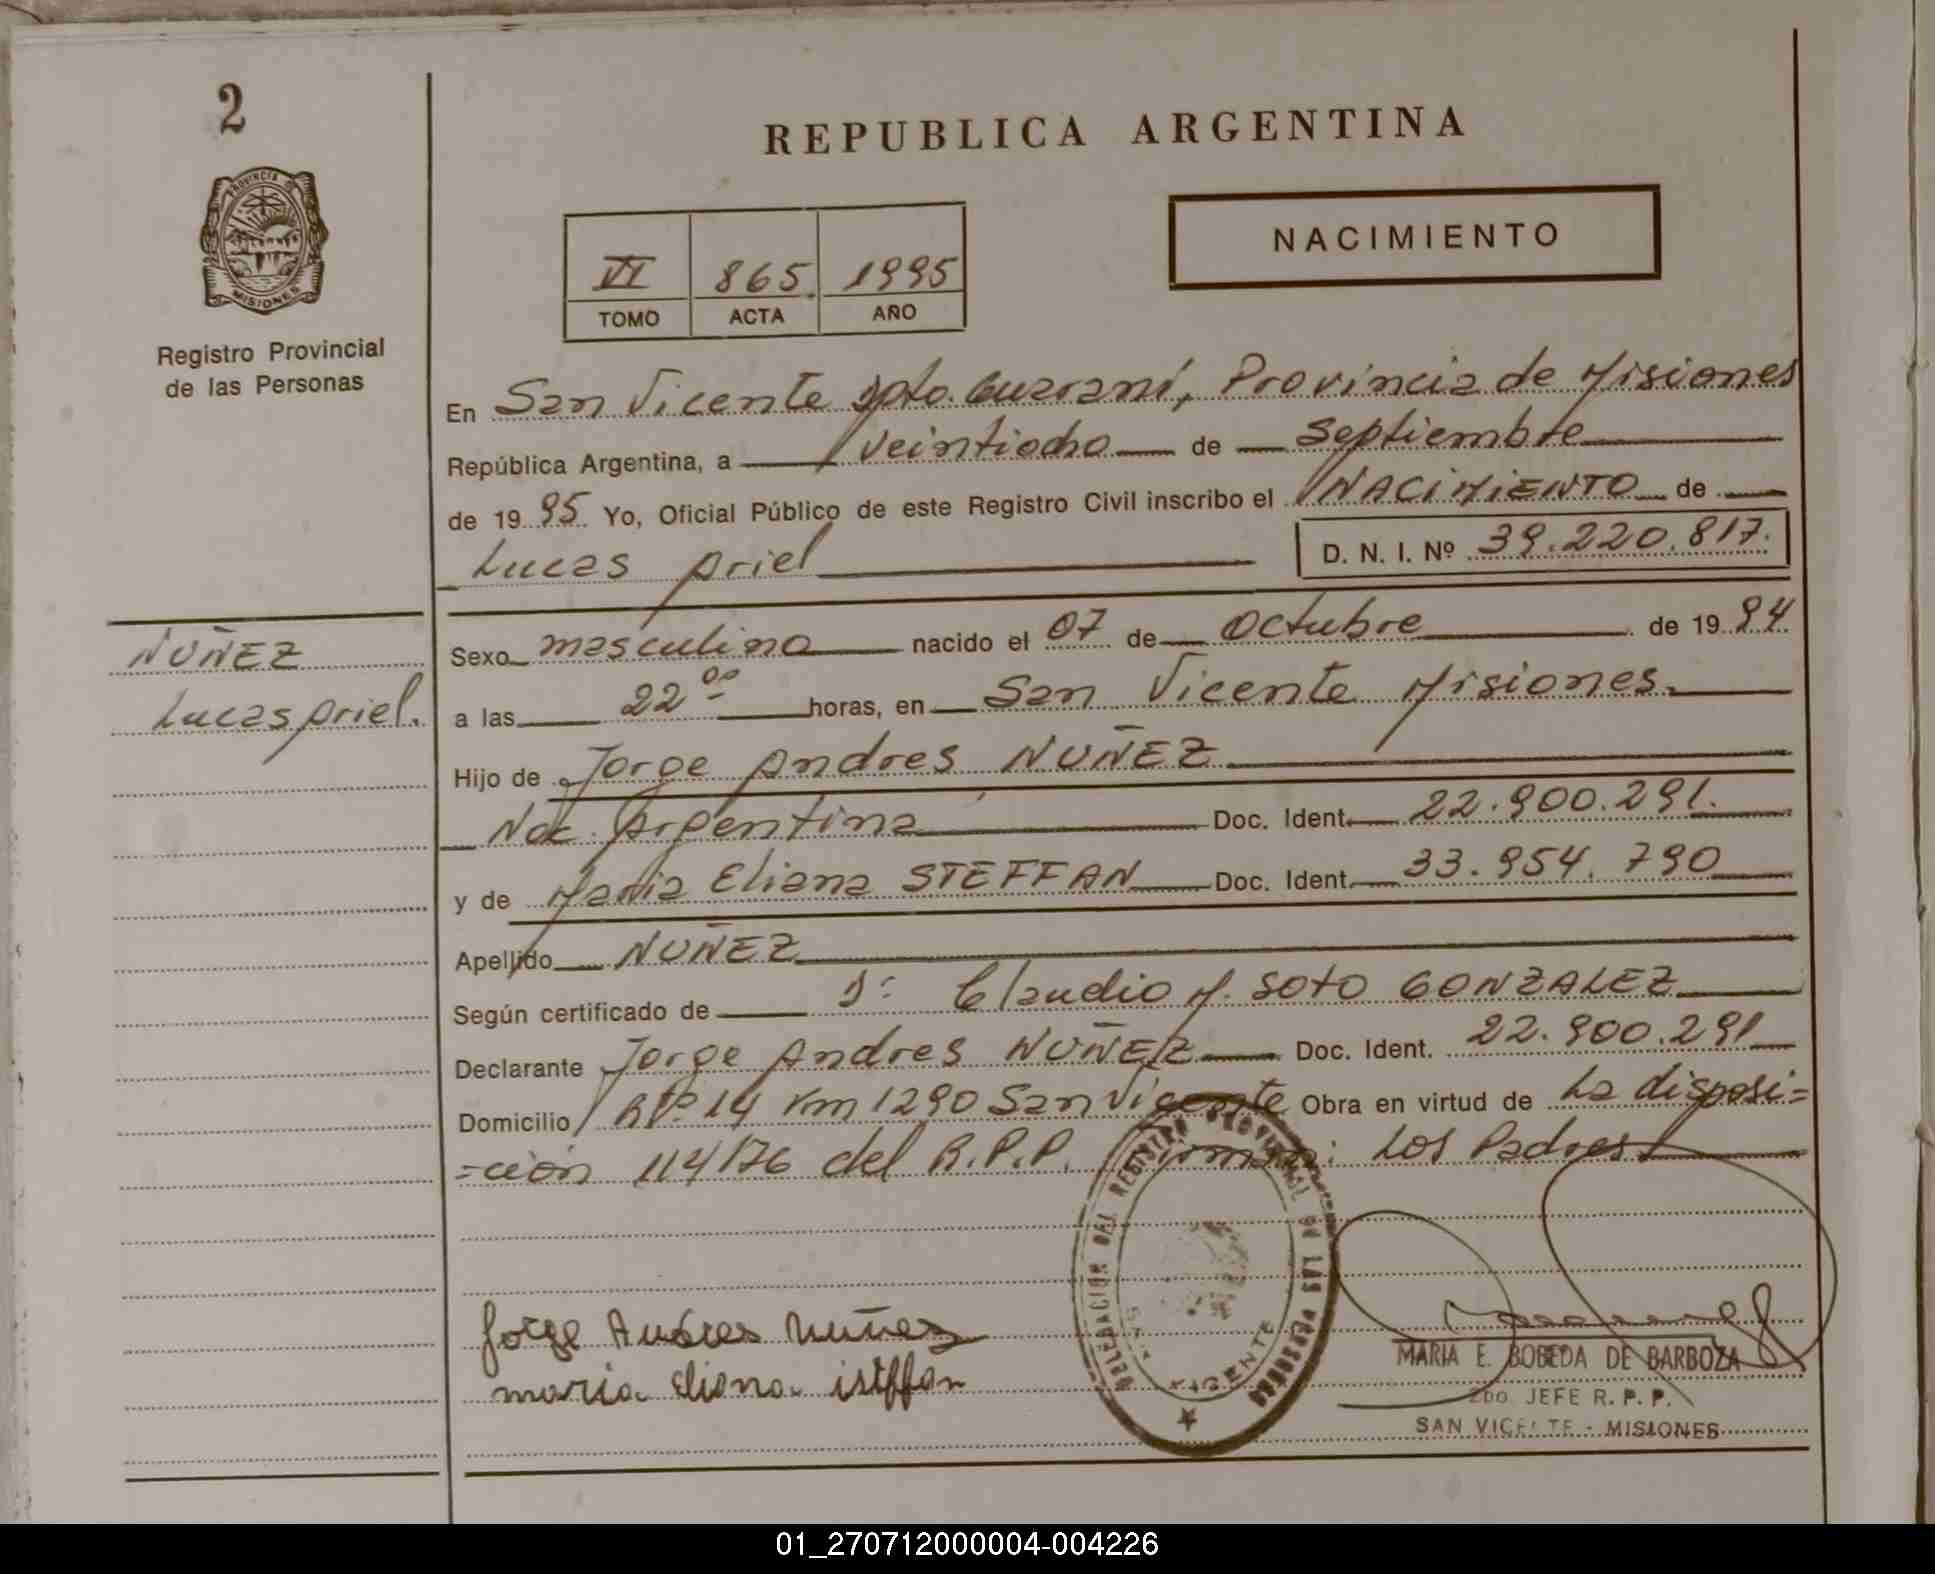 2
REPUBLICA ARGENTINA
NACIMIENTO
VI 865 1995
TOMO ACTA AÑO
PROVINCIA DE
MISIONES
Registro Provincial
de las Personas
En San Vicente Dpto. Guaraní, Provincia de Misiones
República Argentina, a veintiocho de Septiembre
de 1995 Yo, Oficial Público de este Registro Civil inscribo el NACIMIENTO de
Lucas Ariel D. N. I. Nº 39.220.817.
NUÑEZ
Lucas Ariel.
Sexo masculino nacido el 07 de Octubre de 1994
a las 22 00 horas, en San Vicente Misiones.
Hijo de Jorge Andres NUÑEZ
Nac. Argentina Doc. Ident. 22.900.291.
y de Maria Eliana STEFFAN Doc. Ident. 33.954.790
Apellido NUÑEZ
Según certificado de Dr. Claudio M. SOTO GONZALEZ
Declarante Jorge Andres NUÑEZ Doc. Ident. 22.900.291
Domicilio R.Nº 14 Km 1290 San Vicente Obra en virtud de La disposi=
=ción 114/76 del R.P.P. Firman: Los Padres
DELEGACION DEL REGISTRO PROVINCIAL DE LAS PERSONAS
SAN VICENTE
Jorge Andres Nuñez
maria eliana isteffan
MARIA E. BOBEDA DE BARBOZA
2DO. JEFE R. P. P.
SAN VICENTE - MISIONES
01_270712000004-004226